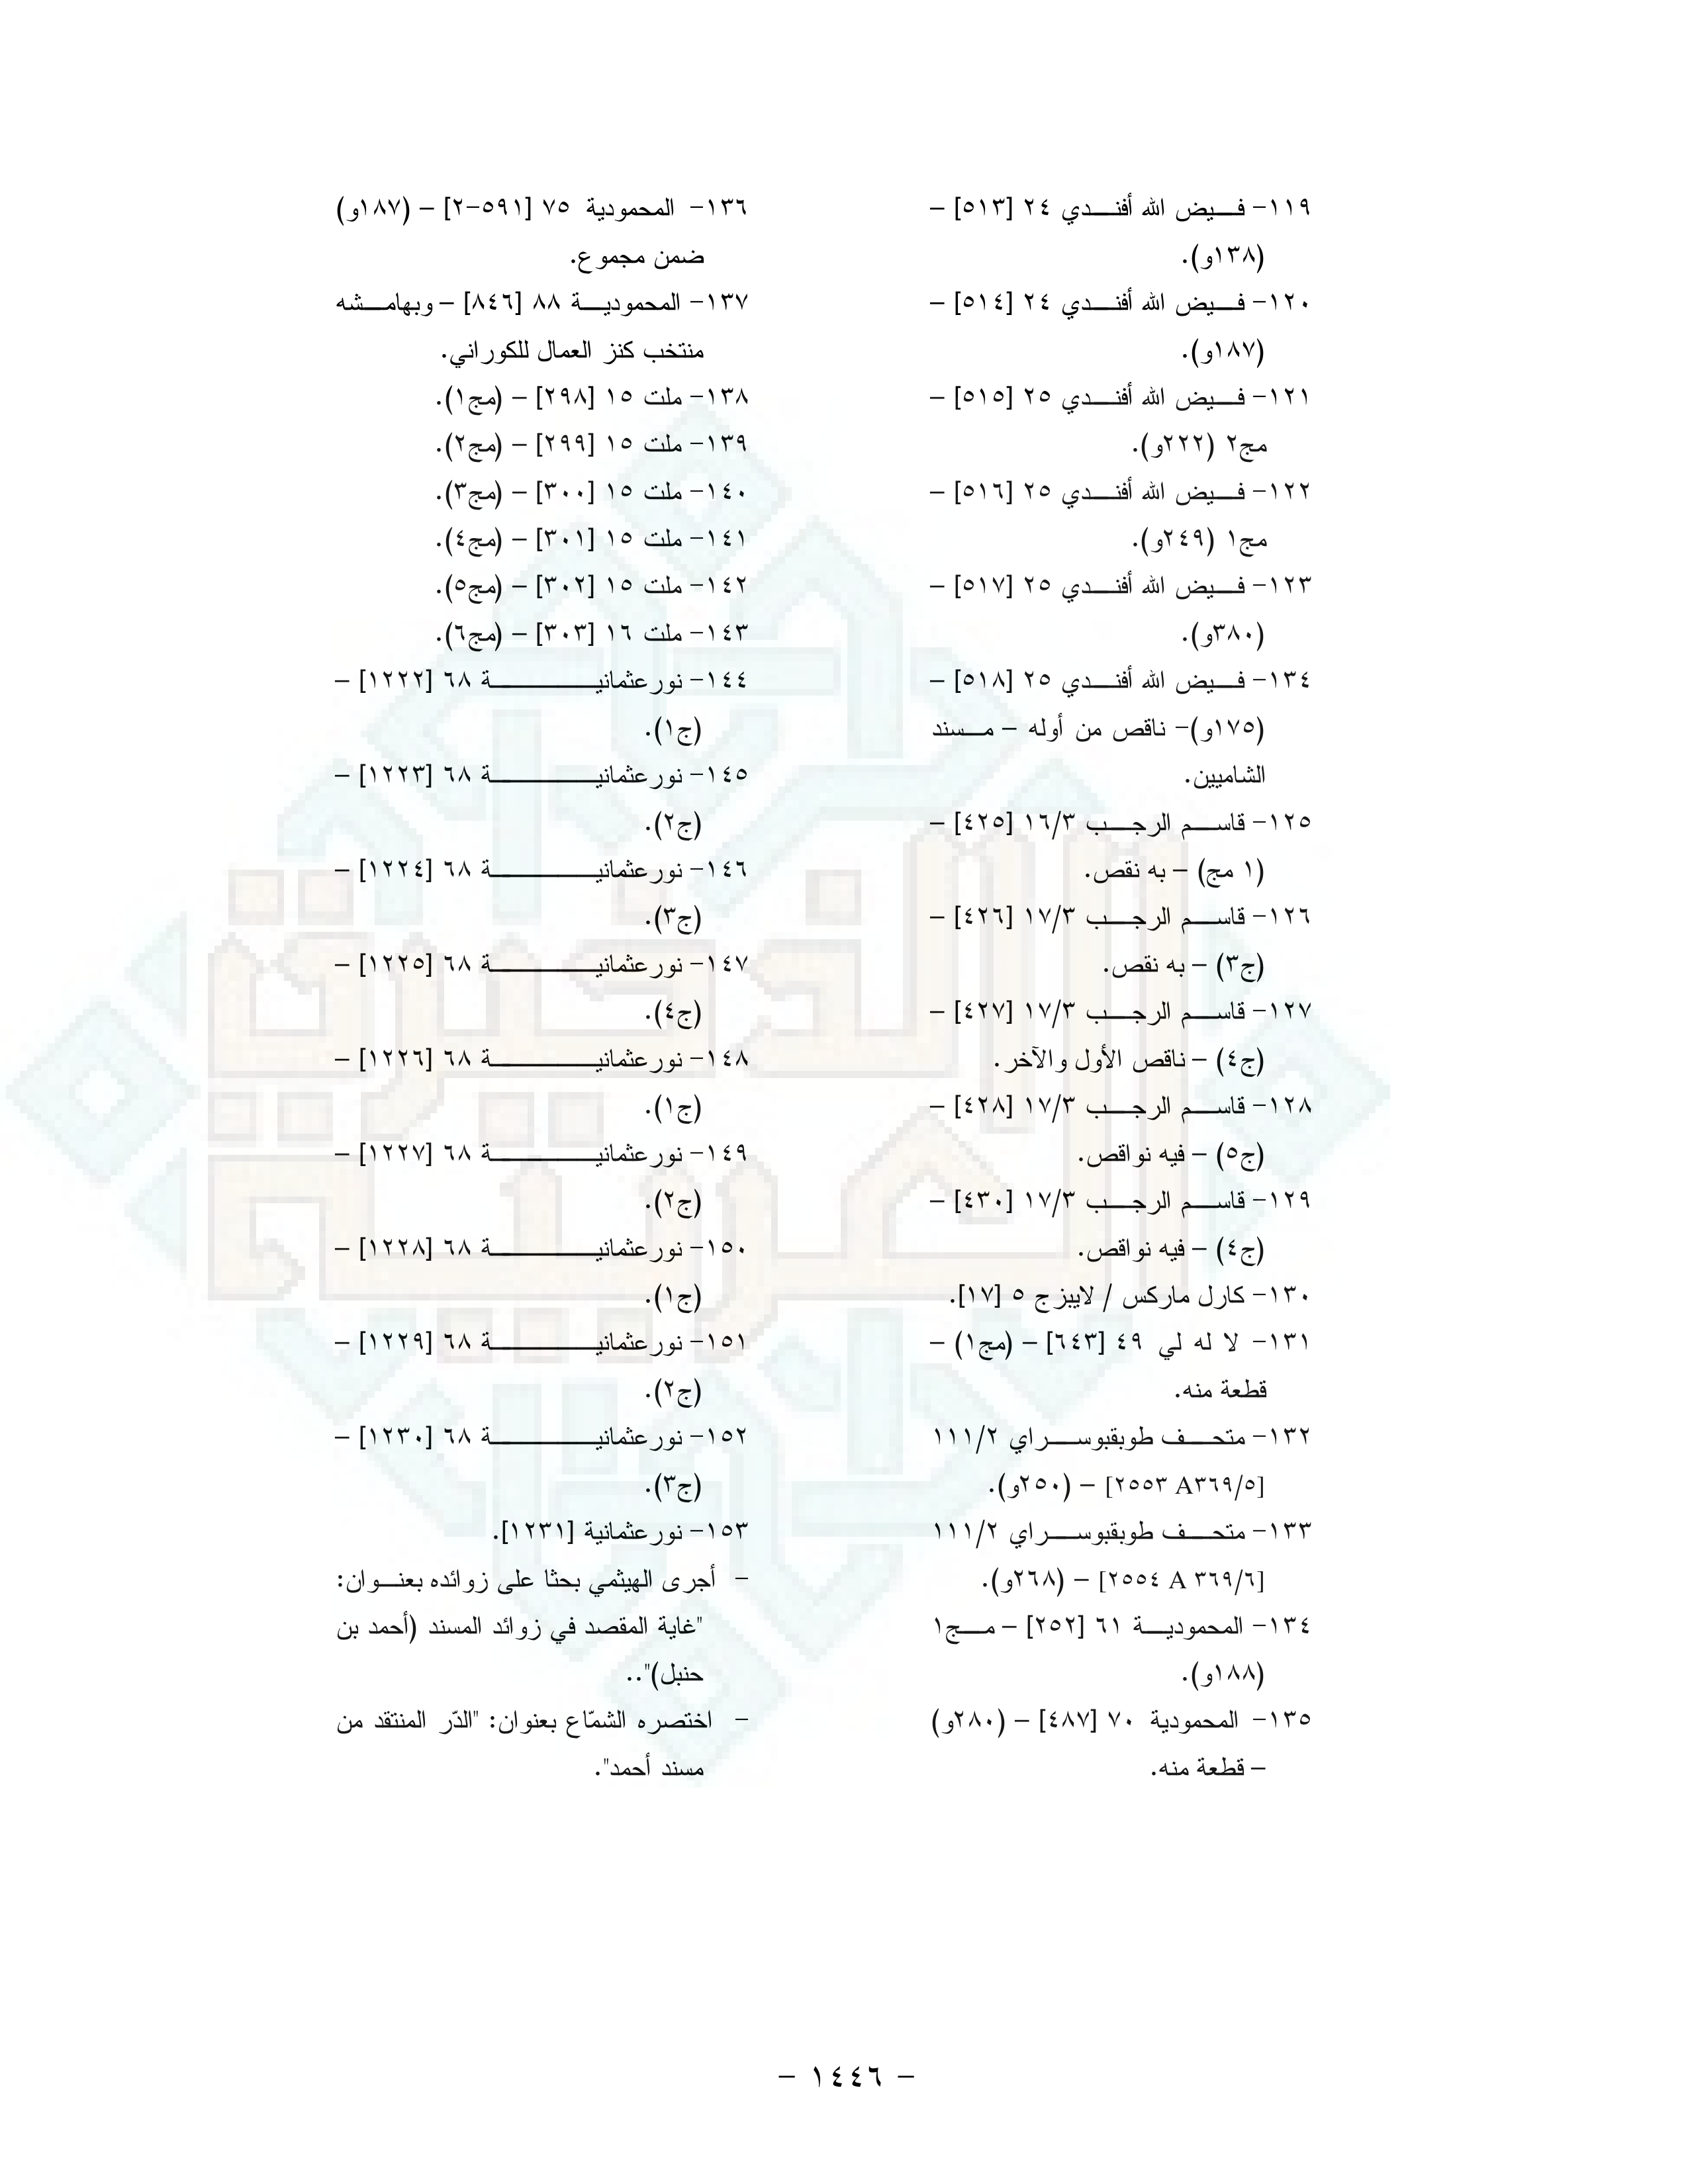 ١١٩- فيض الله أفندي ٢٤ [٥١٣] –
(١٣٨و).
١٢٠- فيض الله أفندي ٢٤ [٥١٤] –
(١٨٧و).
١٢١- فيض الله أفندي ٢٥ [٥١٥] –
مج٢ (٢٢٢و).
١٢٢- فيض الله أفندي ٢٥ [٥١٦] –
مج١ (٢٤٩و).
١٢٣- فيض الله أفندي ٢٥ [٥١٧] –
(٣٨٠و).
١٣٤- فيض الله أفندي ٢٥ [٥١٨] –
(١٧٥و)- ناقص من أوله – مسند
الشاميين.
١٢٥- قاسم الرجب ١٦/٣ [٤٢٥] –
(١ مج) – به نقص.
١٢٦- قاسم الرجب ١٧/٣ [٤٢٦] –
(ج٣) – به نقص.
١٢٧- قاسم الرجب ١٧/٣ [٤٢٧] –
(ج٤) – ناقص الأول والآخر.
١٢٨- قاسم الرجب ١٧/٣ [٤٢٨] –
(ج٥) – فيه نواقص.
١٢٩- قاسم الرجب ١٧/٣ [٤٣٠] –
(ج٤) – فيه نواقص.
١٣٠- كارل ماركس / لايبزج ٥ [١٧].
١٣١- لا له لي ٤٩ [٦٤٣] – (مج١) –
قطعة منه.
١٣٢- متحف طوبقبوسراي ١١١/٢
[٢٥٥٣ A٣٦٩/٥] – (٢٥٠و).
١٣٣- متحف طوبقبوسراي ١١١/٢
[٢٥٥٤ A ٣٦٩/٦] – (٢٦٨و).
١٣٤- المحمودية ٦١ [٢٥٢] – مج١
(١٨٨و).
١٣٥- المحمودية ٧٠ [٤٨٧] – (٢٨٠و)
– قطعة منه.
١٣٦- المحمودية ٧٥ [٥٩١-٢] – (١٨٧و)
ضمن مجموع.
١٣٧- المحمودية ٨٨ [٨٤٦] – وبهامشه
منتخب كنز العمال للكوراني.
١٣٨- ملت ١٥ [٢٩٨] – (مج١).
١٣٩- ملت ١٥ [٢٩٩] – (مج٢).
١٤٠- ملت ١٥ [٣٠٠] – (مج٣).
١٤١- ملت ١٥ [٣٠١] – (مج٤).
١٤٢- ملت ١٥ [٣٠٢] – (مج٥).
١٤٣- ملت ١٦ [٣٠٣] – (مج٦).
١٤٤- نورعثمانية ٦٨ [١٢٢٢] –
(ج١).
١٤٥- نورعثمانية ٦٨ [١٢٢٣] –
(ج٢).
١٤٦- نورعثمانية ٦٨ [١٢٢٤] –
(ج٣).
١٤٧- نورعثمانية ٦٨ [١٢٢٥] –
(ج٤).
١٤٨- نورعثمانية ٦٨ [١٢٢٦] –
(ج١).
١٤٩- نورعثمانية ٦٨ [١٢٢٧] –
(ج٢).
١٥٠- نورعثمانية ٦٨ [١٢٢٨] –
(ج١).
١٥١- نورعثمانية ٦٨ [١٢٢٩] –
(ج٢).
١٥٢- نورعثمانية ٦٨ [١٢٣٠] –
(ج٣).
١٥٣- نورعثمانية [١٢٣١].
- أجرى الهيثمي بحثا على زوائده بعنوان:
"غاية المقصد في زوائد المسند (أحمد بن
حنبل)"..
- اختصره الشمّاع بعنوان: "الدّر المنتقد من
مسند أحمد".
– ١٤٤٦ –
الذخيرة
العربية